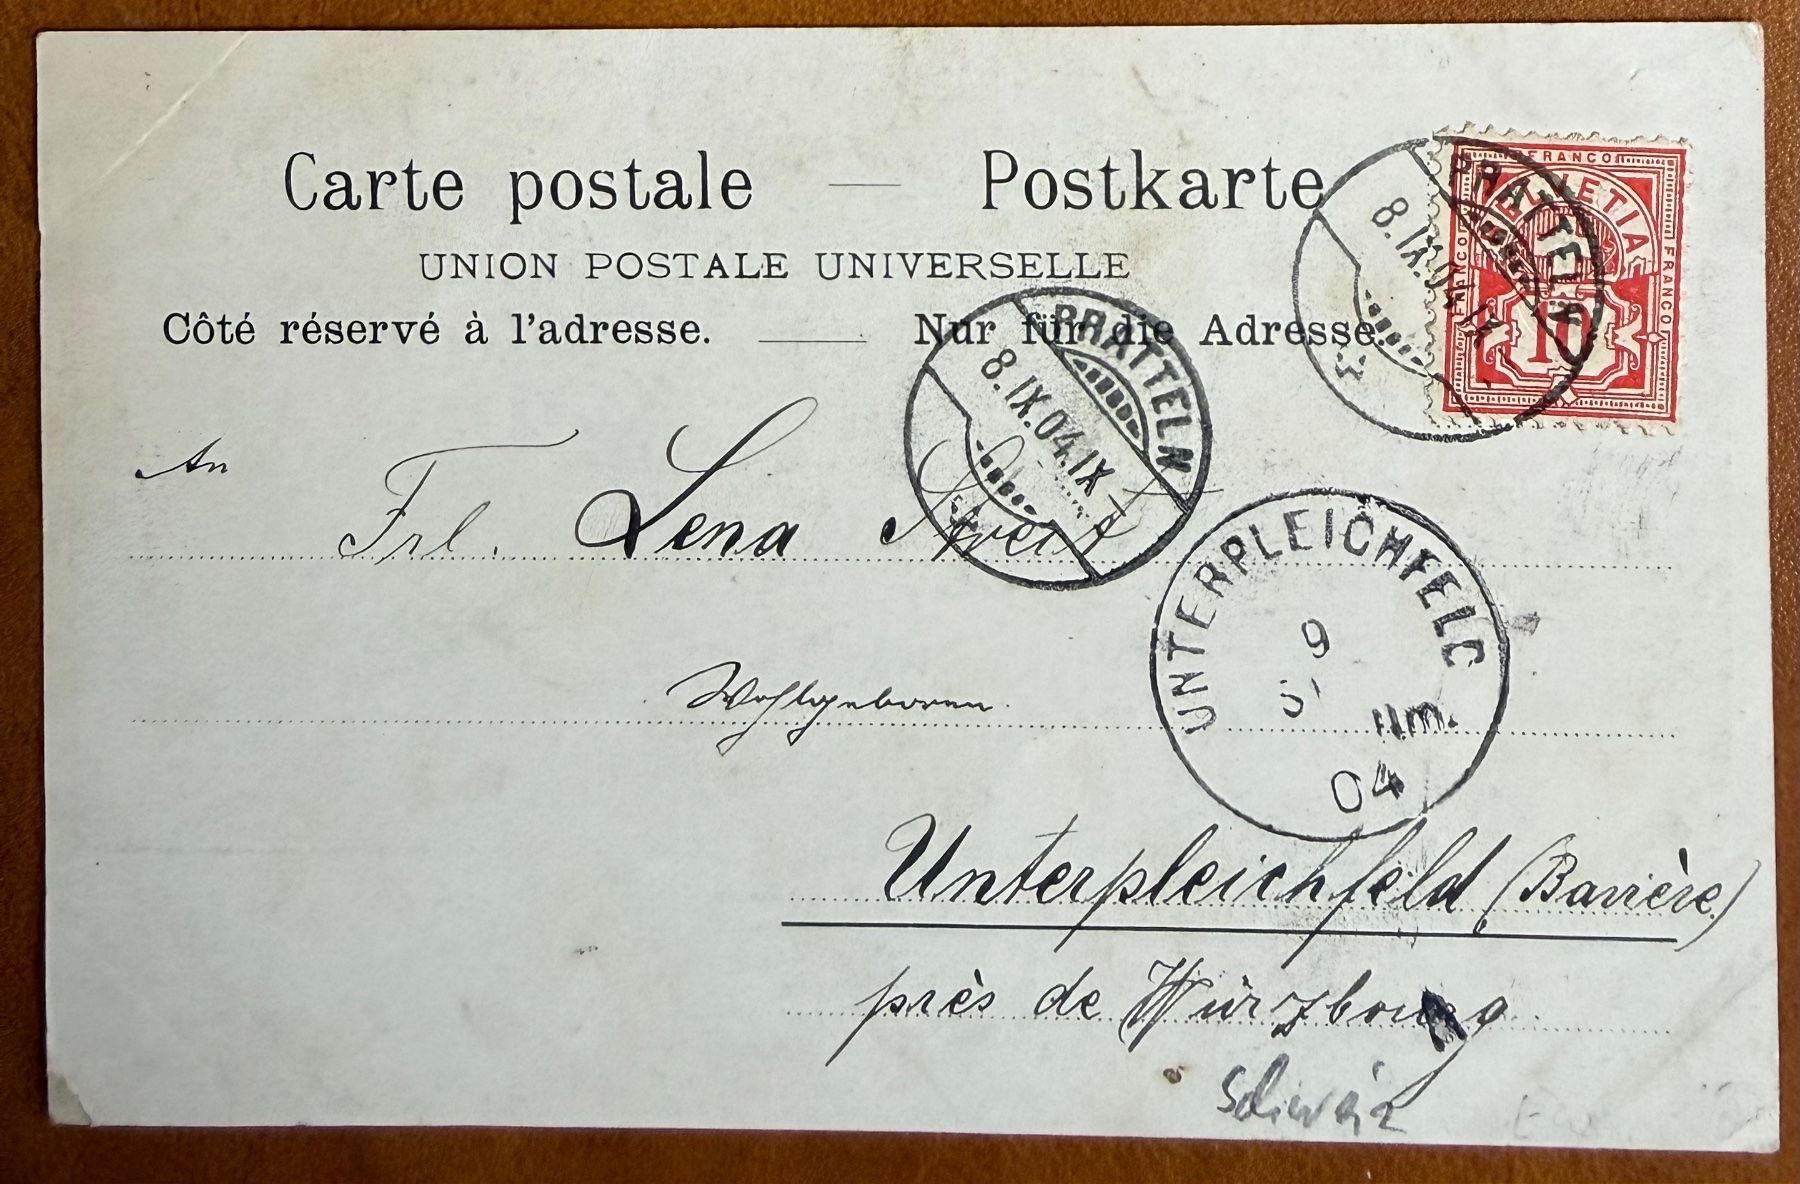 Carte postale — Postkarte
UNION POSTALE UNIVERSELLE
Côté réservé à l'adresse. — Nur für die Adresse.
FRANCO
HELVETIA
FRANCO
FRANCO
10
PRATTELN
8.IX.04.IX
PRATTELN
8.IX.04.IX
An
Frl. Lena Streit
UNTERPLEICHFELD
9
Nm.
04
Wohlgeboren.
Unterpleichfeld (Bavière)
près de Würzbourg
Schweiz